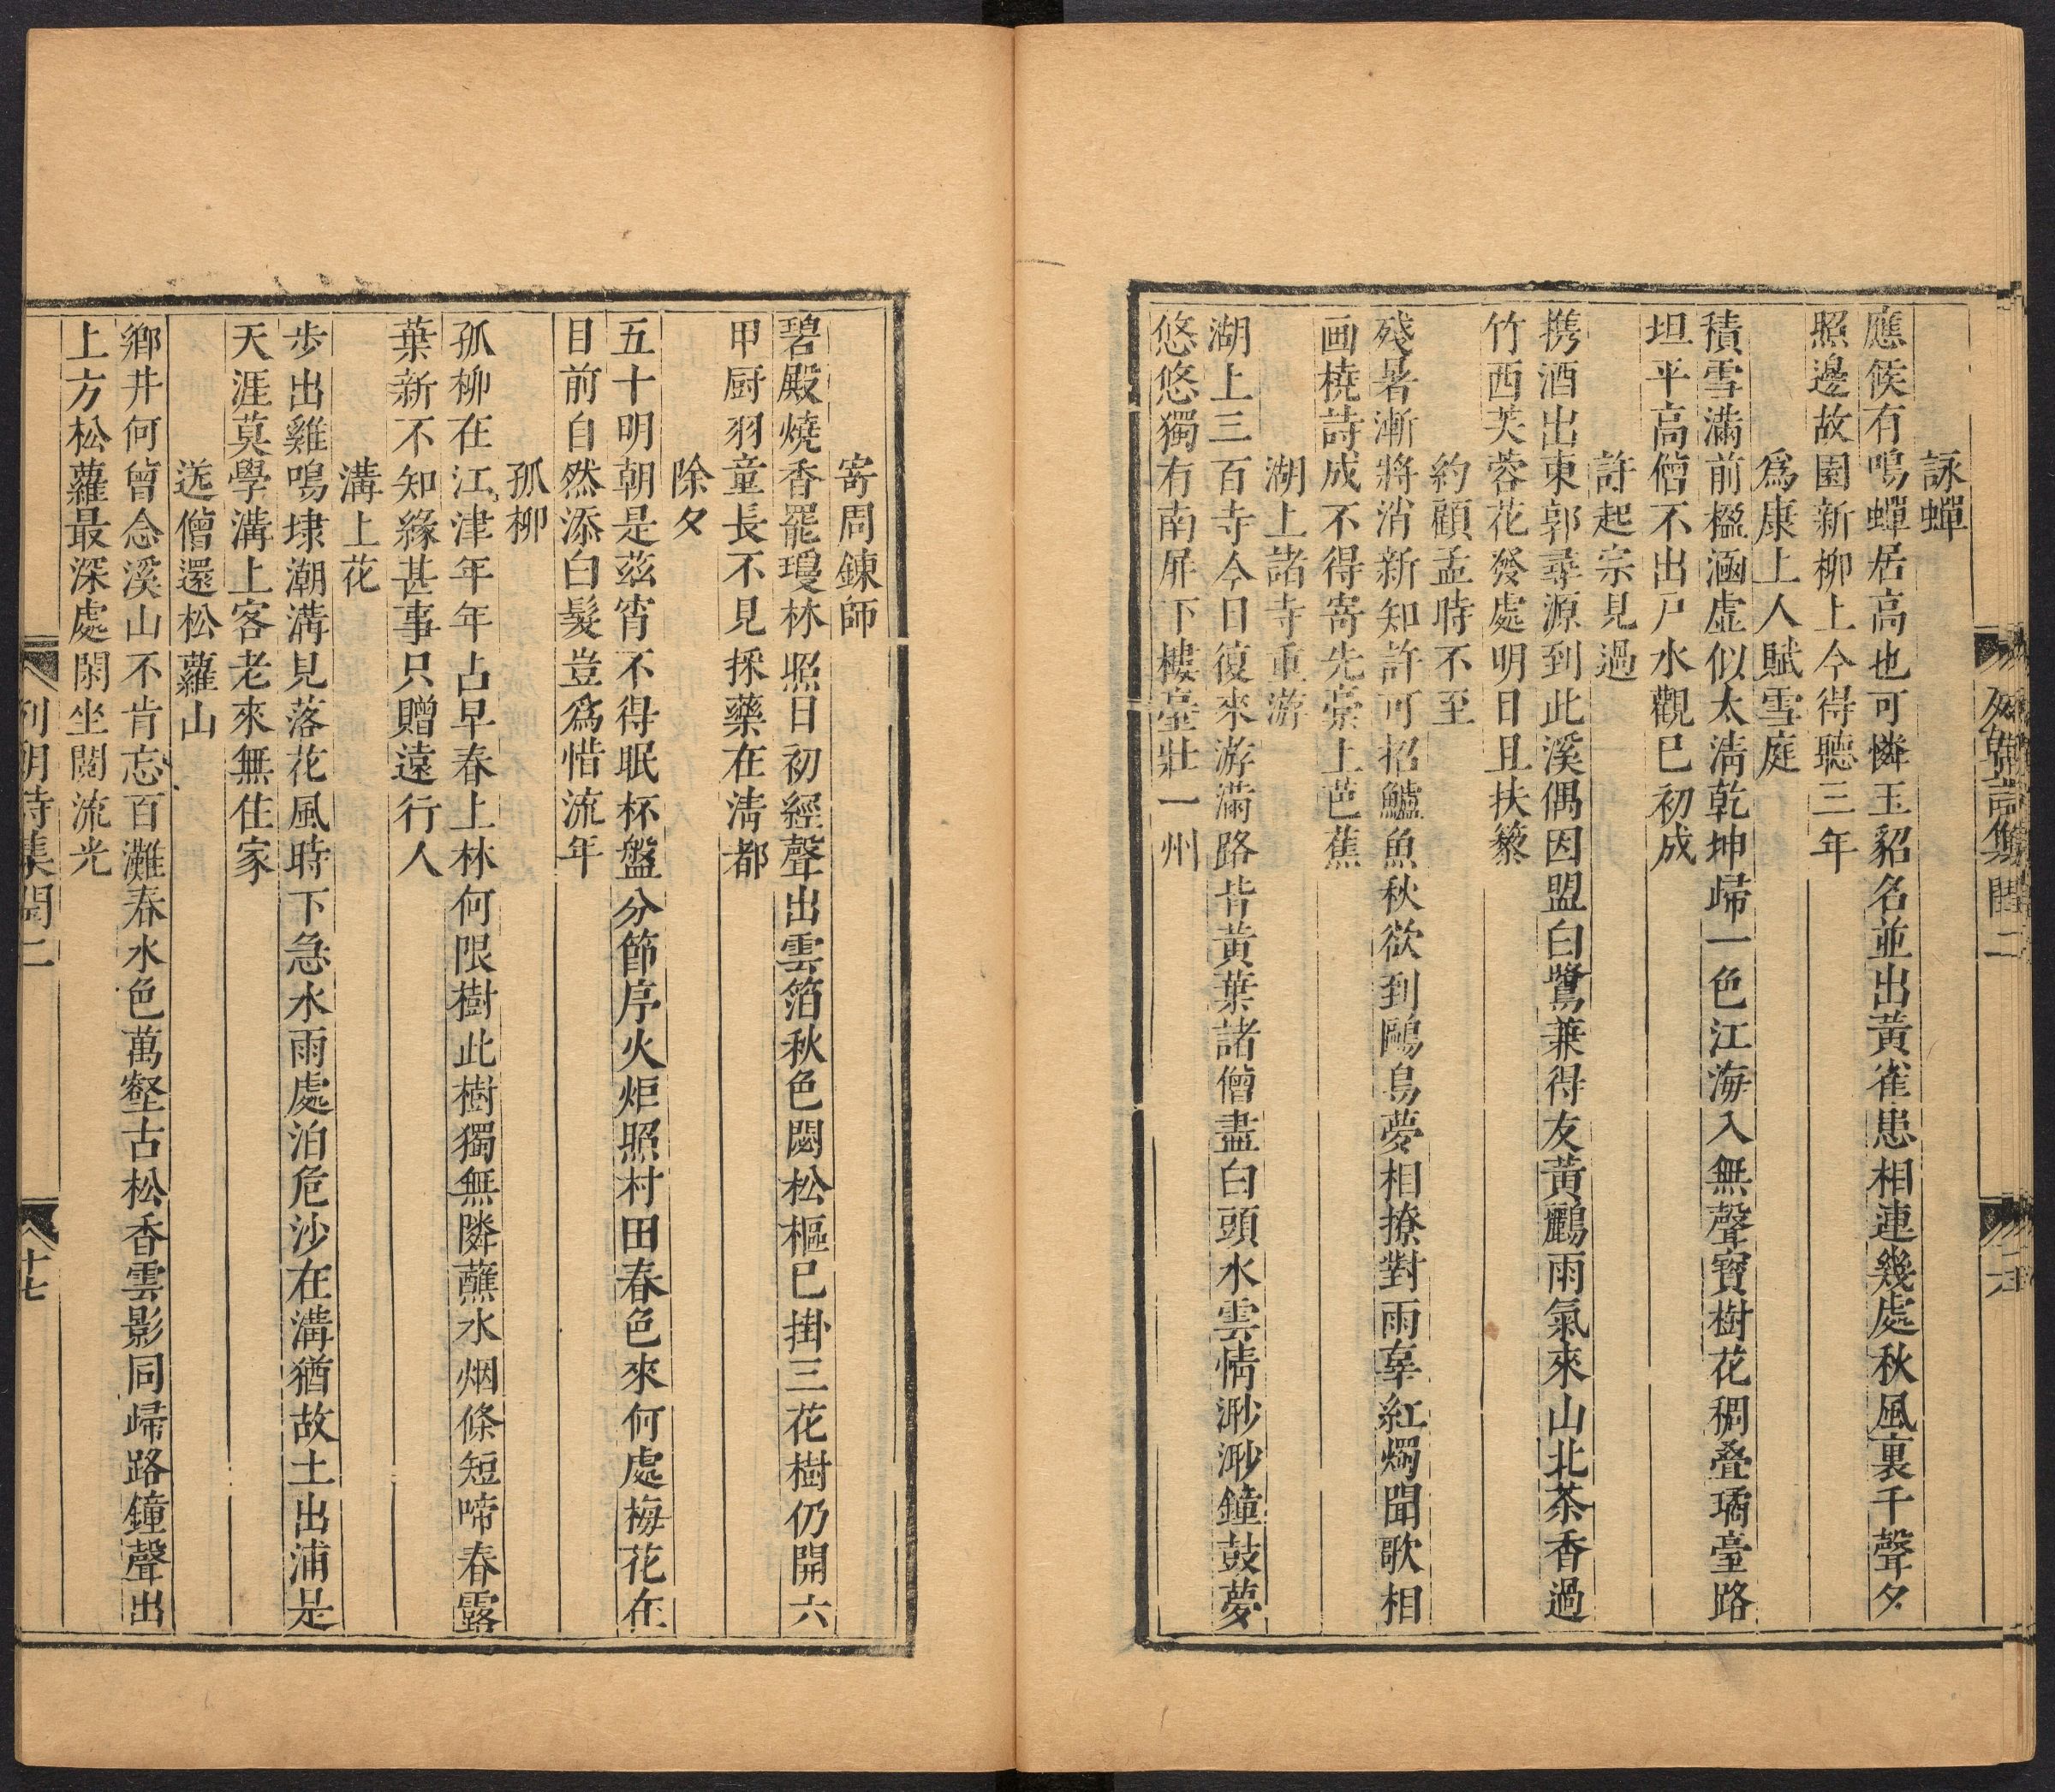 詠蟬
應候有鳴蟬居高也可憐玉貂名並出黃雀患相連幾處秋風裏千聲夕
照邊故園新柳上今得聽三年
爲康上人賦雪庭
積雪滿前楹涵虛似太淸乾坤歸一色江海入無聲寳樹花稠疊瑤臺路
坦平高僧不出戸水觀已初成
許起宗見過
携酒出東郭尋源到此溪偶因盟白鷺兼得友黃鸝雨氣來山北茶香過
竹西芙蓉花發處明日且扶藜
約顧孟時不至
殘暑漸將消新知許可招鱸魚秋欲到鷗鳥夢相撩對雨辜紅燭聞歌相
画橈詩成不得寄先稾上芭蕉
湖上諸寺重游
湖上三百寺今日復來游滿路皆黃葉諸僧盡白頭水雲情渺渺鐘鼓夢
悠悠獨有南屛下樓臺壯一州
列朝詩集閏二
寄周鍊師
碧殿燒香罷瓊林照日初經聲出雲箔秋色閟松樞已掛三花樹仍開六
甲厨羽童長不見採藥在淸都
除夕
五十明朝是兹宵不得眠杯盤分節序火炬照村田春色來何處梅花在
目前自然添白髮豈爲惜流年
孤柳
孤柳在江津年年占早春上林何限樹此樹獨無隣蘸水烟條短啼春露
葉新不知緣甚事只贈遠行人
溝上花
歩出雞鳴埭潮溝見落花風時下急水雨處泊危沙在溝猶故土出浦是
天涯莫學溝上客老來無住家
送僧還松蘿山
鄕井何曾念溪山不肯忘百灘春水色萬壑古松香雲影同歸路鐘聲出
上方松蘿最深處閑坐閱流光
列朝詩集閏二
十七